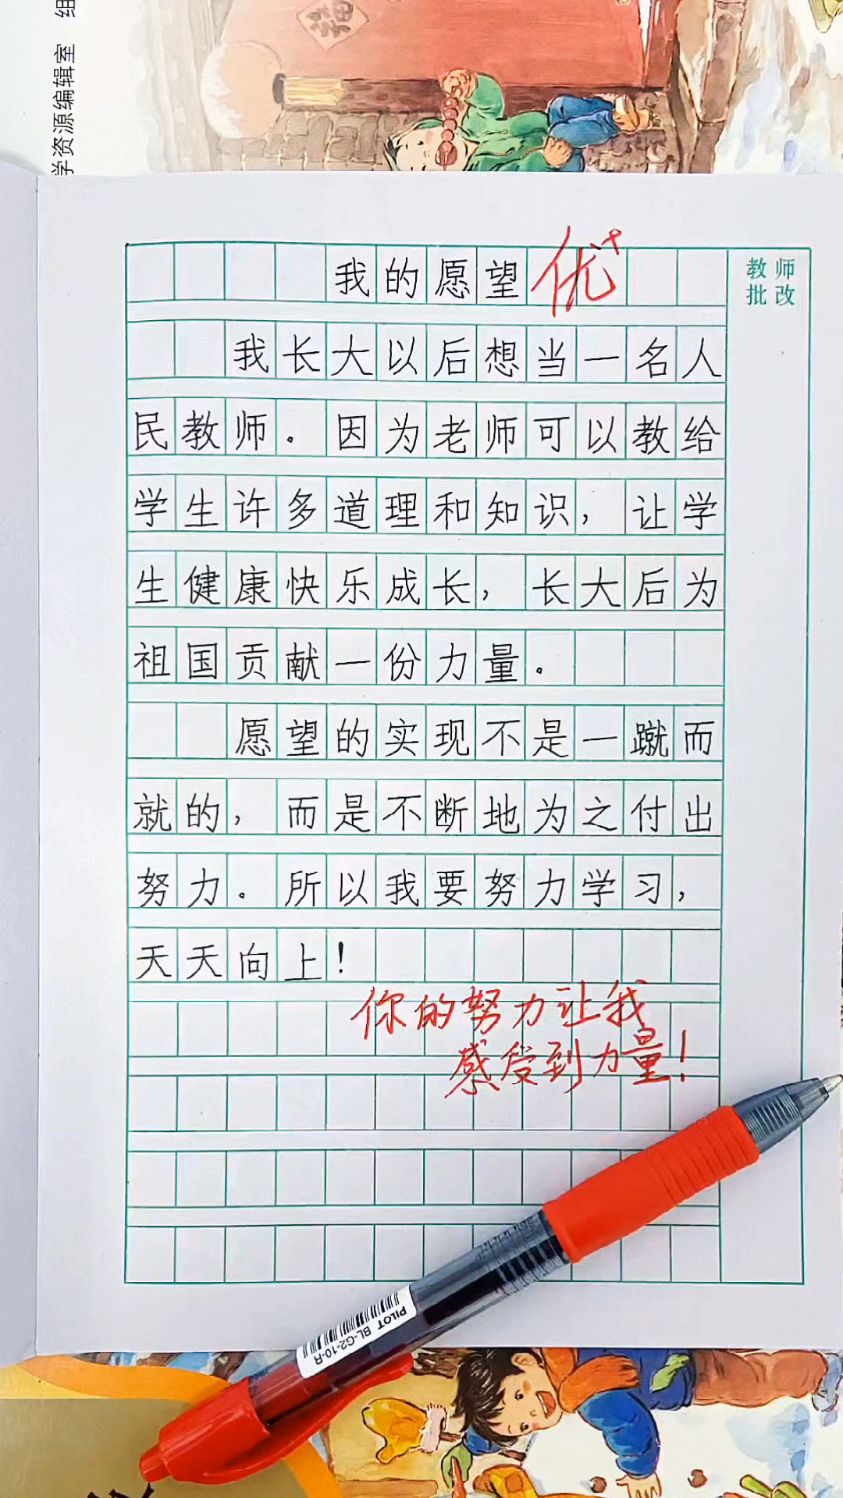 学资源编辑室 组
福
我的愿望 优+
教师
批改
我长大以后想当一名人
民教师。因为老师可以教给
学生许多道理和知识，让学
生健康快乐成长，长大后为
祖国贡献一份力量。
愿望的实现不是一蹴而
就的，而是不断地为之付出
努力。所以我要努力学习，
天天向上！
你的努力让我
感受到力量！
PILOT BL-G2-10-R